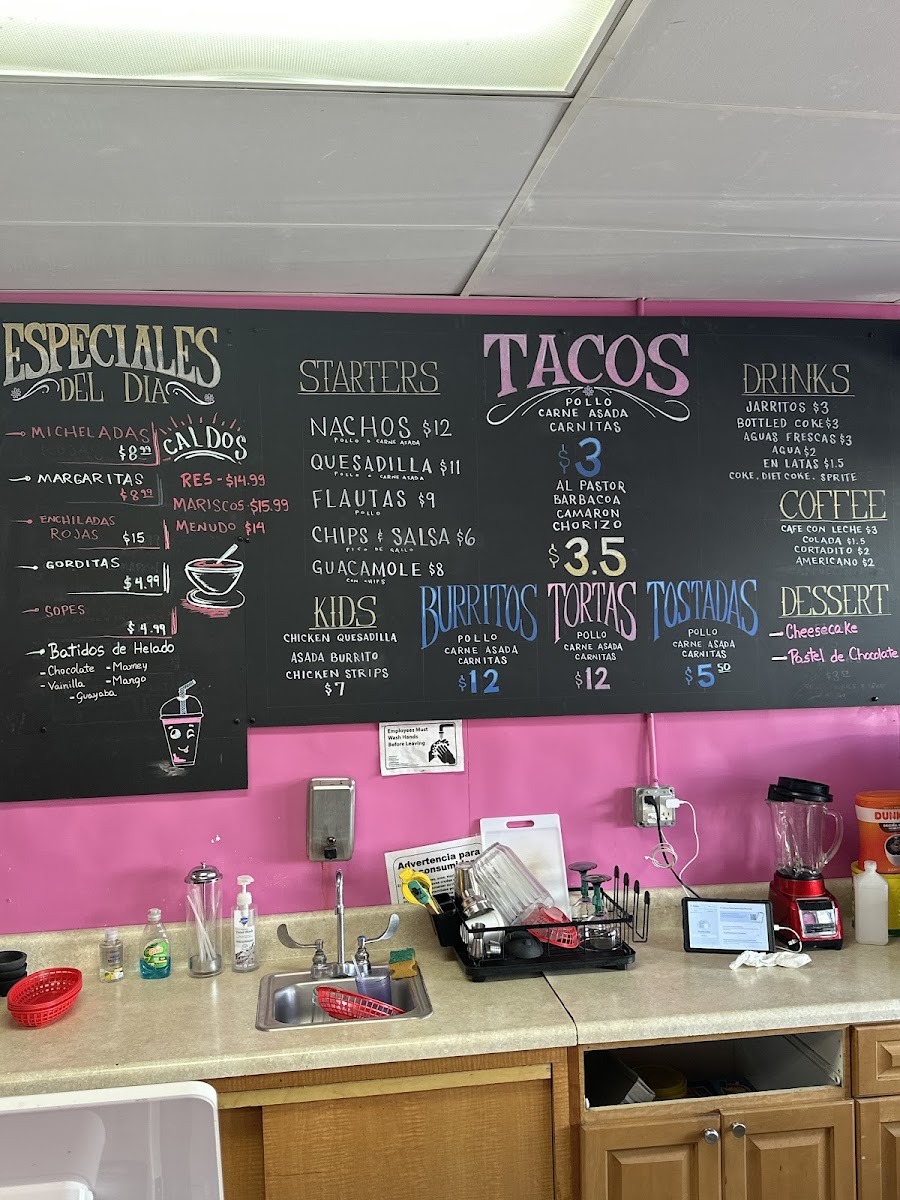 ESPECIALES
DEL DIA
MICHELADAS
$8.99
MARGARITAS
$8.99
ENCHILADAS
ROJAS $15
GORDITAS
$4.99
SOPES
$4.99
Batidos de Helado
-Chocolate -Mamey
-Vainilla -Mango
-Guayaba
CALDOS
RES - $14.99
MARISCOS $15.99
MENUDO $14
STARTERS
NACHOS $12
POLLO O CARNE ASADA
QUESADILLA $11
POLLO O CARNE ASADA
FLAUTAS $9
POLLO
CHIPS & SALSA $6
PICO DE GALLO
GUACAMOLE $8
CON CHIPS
KIDS
CHICKEN QUESADILLA
ASADA BURRITO
CHICKEN STRIPS
$7
TACOS
POLLO
CARNE ASADA
CARNITAS
$3
AL PASTOR
BARBACOA
CAMARON
CHORIZO
$3.5
BURRITOS
POLLO
CARNE ASADA
CARNITAS
$12
TORTAS
POLLO
CARNE ASADA
CARNITAS
$12
TOSTADAS
POLLO
CARNE ASADA
CARNITAS
$5 50
DRINKS
JARRITOS $3
BOTTLED COKE $3
AGUAS FRESCAS $3
AGUA $2
EN LATAS $1.5
COKE, DIET COKE, SPRITE
COFFEE
CAFE CON LECHE $3
COLADA $1.5
CORTADITO $2
AMERICANO $2
DESSERT
Cheesecake
Pastel de Chocolate
Employees Must
Wash Hands
Before Leaving
Advertencia para
DUNK